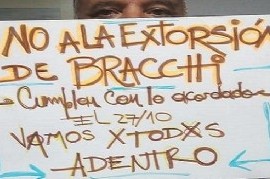 NO A LA EXTORSIÓN
DE BRACCHI
Cumplan con lo acordado
EL 27/10
VAMOS XTODXS
ADENTRO